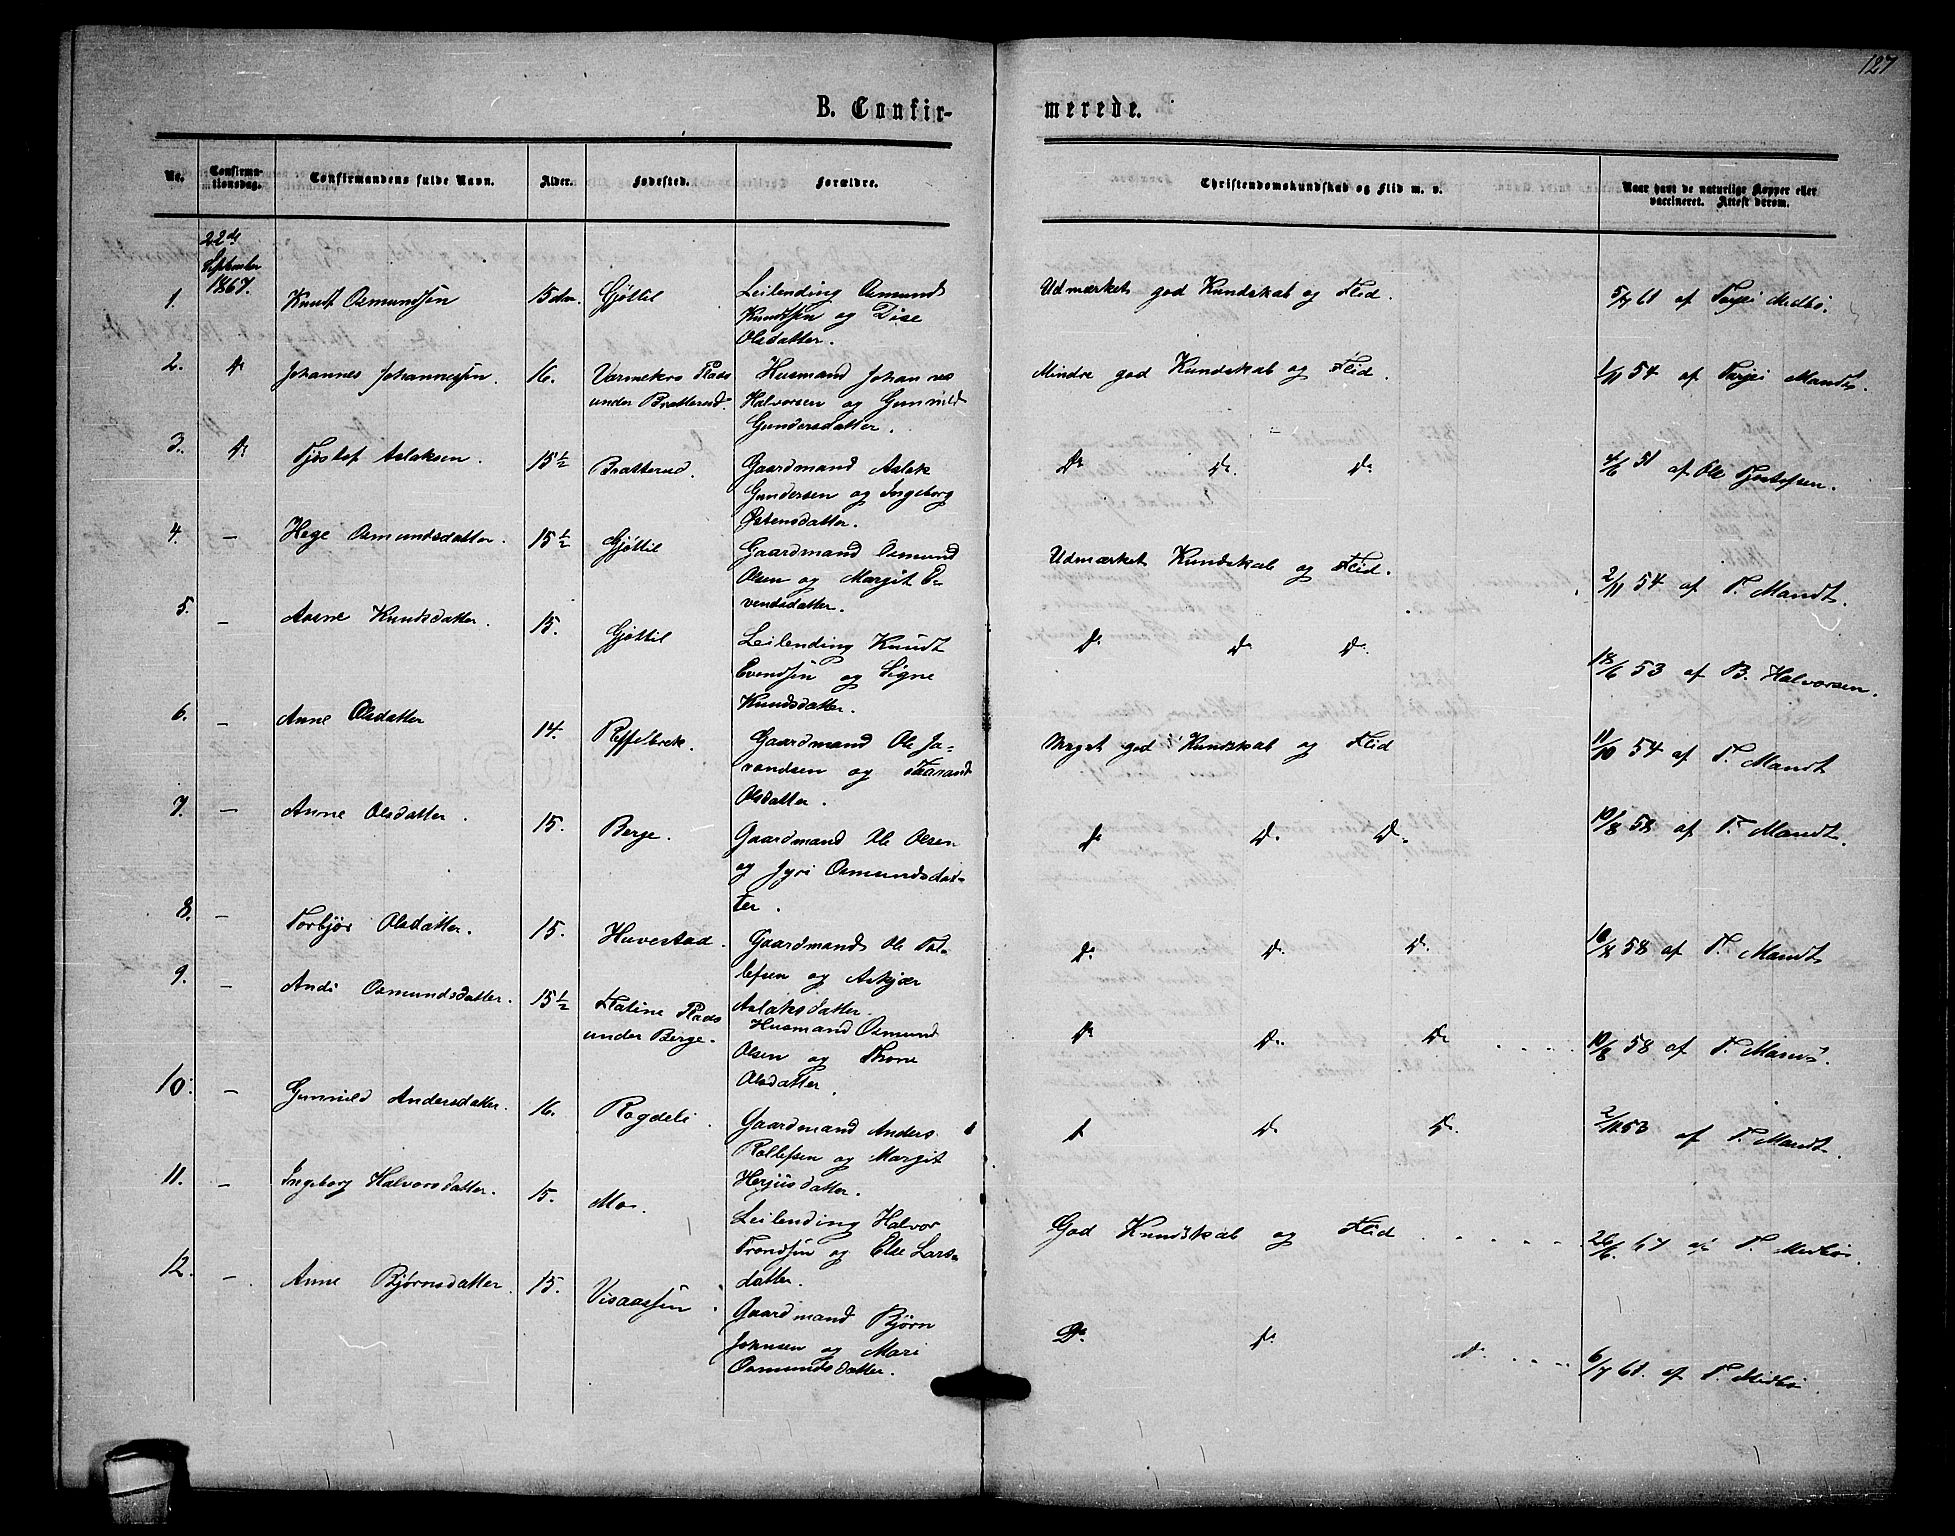 127
B. Confir- merede.
No. Confirma-tionsdag. Confirmandens fulde Navn. Alder. Fødested. Forældre. Christendomskundskab og Flid m. v. Naar havt de naturlige Kopper eller vaccineret. Attest derom.
22de September 1867.
1. Knut Osmundsen 15 Gjøttil Leilending Osmund Udmærket god Kundskab og Flid. 5/7 61 af Terje Midbø.
Knudsen og Dise
Olsdatter.
2. Do Johannes Johannesen 16. Varmekros Plads Husmand Johannes Mindre god Kundskab og Flid. 1/11 54 af Terje Mandt.
under Bratterud. Halvorsen og Gunvild
Gundersdatter.
3. Do Tjøstof Aslaksen. 15½ Bratterud. Gaardmand Aslak Do Do. Do 4/6 51 af Ole Tjøstofsen.
Gundersen og Ingeborg
Østensdatter.
4. — Hege Osmundsdatter. 15½ Gjøttil Gaardmand Osmund Udmærket Kundskab og Flid. 2/11 54 af T. Mandt.
Olsen og Margit E-
vendsdatter.
5. — Aasne Knudsdatter. 15. Gjøttil Leilending Knudt Do Do Do 18/6 53 af B. Halvorsen.
Evendsen og Signe
Knudsdatter.
6. — Anne Olsdatter 14. Gaardmand Ole Ja- Meget god Kundskab og Flid 11/10 54 af T. Mandt
vondsen og Taran
Olsdatter.
7. — Anne Olsdatter. 15. Berge. Gaardmand Ole Olsen Do Do. Do. 10/8 58 af T. Mandt.
og Jyri Osmundsdat-
ter.
8. — Torbjør Olsdatter. 15. Huvestad. Gaardmand Ole Tol- Do. Do. Do. 10/8 58 af T. Mandt
lefsen og Askjær
Aslaksdatter.
9. — Andi Osmundsdatter. 15½ Flatine Plads Husmand Osmund Do Do. Do 10/8 58 af T. Mandt
under Berge. Olsen og Thone
Olsdatter.
10. — Gunnild Andersdatter. 16. Rogdeli. Gaardmand Anders Do. Do. 2/11 53 af T. Mandt.
Rollefsen og Margit
Herjusdatter.
11. — Ingeborg Halvorsdatter. 15. Mo. Leilending Halvor God Kundskab og Flid 26/6. 67 af T. Midbø.
Trondsen og Else Lars-
datter.
12. — Anne Bjørnsdatter. 15. Visaassen Gaardmand Bjørn Do. Do Do 6/7 61. af T. Midbø
Johnsen og Mari
Osmundsdatter.